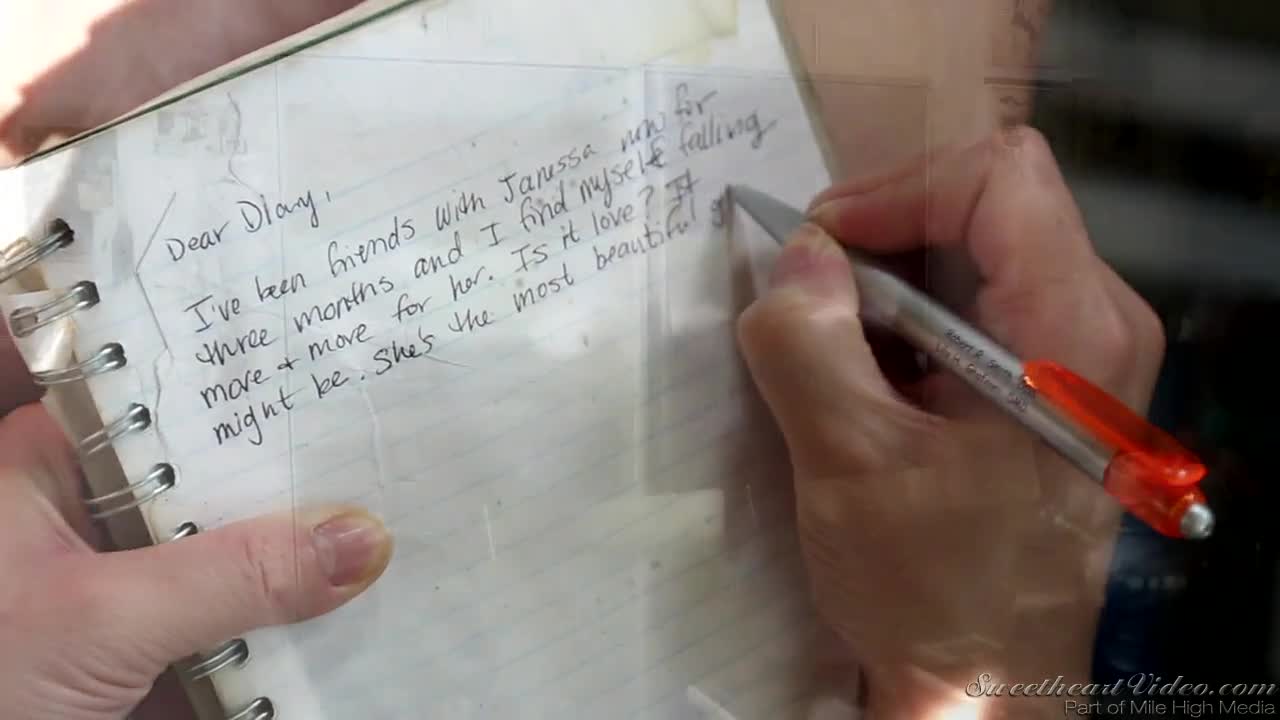 Dear Diary,
I've been friends with Janessa now for
three months and I find myself falling
more + more for her. Is it love? It
might be. She's the most beautiful
Robert R. Smith
SweetheartVideo.com
Part of Mile High Media